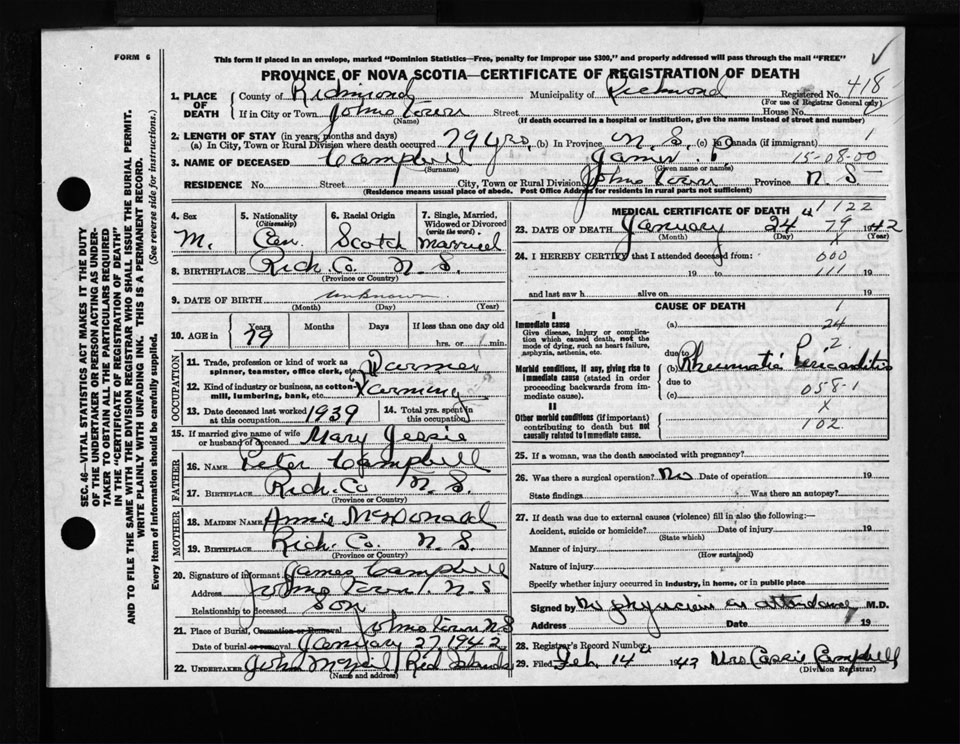 FORM 6
This form if placed in an envelope, marked "Dominion Statistics—Free, penalty for improper use $300," and properly addressed will pass through the mail "FREE"
PROVINCE OF NOVA SCOTIA—CERTIFICATE OF REGISTRATION OF DEATH
418
1. PLACE OF DEATH County of Richmond Municipality of Richmond Registered No.
(For use of Registrar General only)
If in City or Town Johns Town Street House No.
(Name) (If death occurred in a hospital or institution, give the name instead of street and number)
2. LENGTH OF STAY (in years, months and days)
(a) In City, Town or Rural Division where death occurred 79 yrs. (b) In Province N. S. (c) In Canada (if immigrant) 1
3. NAME OF DECEASED Campbell James P. 15-08-00
(Surname) (Given name or names)
RESIDENCE No. Street City, Town or Rural Division Johns Town Province N. S.
(Residence means usual place of abode. Post Office Address for residents in rural parts not sufficient)
4. Sex
M.
5. Nationality
(Citizenship)
Can.
6. Racial Origin
Scotch
7. Single, Married, Widowed or Divorced
(write the word).
Married
8. BIRTHPLACE Rich. Co. N. S.
(Province or Country)
9. DATE OF BIRTH unknown
(Month) (Day) (Year)
10. AGE in Years Months Days If less than one day old
79 hrs. or min.
OCCUPATION
11. Trade, profession or kind of work as spinner, teamster, office clerk, etc. Farmer
12. Kind of industry or business, as cotton-mill, lumbering, bank, etc. Farming
13. Date deceased last worked at this occupation 1939 14. Total yrs. spent in this occupation
15. If married give name of wife or husband of deceased Mary Jessie
FATHER
16. NAME Peter Campbell
17. BIRTHPLACE Rich. Co N. S.
(Province or Country)
MOTHER
18. MAIDEN NAME Annie McDonald
19. BIRTHPLACE Rich. Co. N. S.
(Province or Country)
20. Signature of informant James Campbell
Address Johns Town. N. S
Relationship to deceased Son
21. Place of Burial, Cremation or Removal Johns Town N S
Date of burial or removal January 27, 1942
22. UNDERTAKER John McNeil Red Islands
(Name and address)
MEDICAL CERTIFICATE OF DEATH 1122
23. DATE OF DEATH January 24 79 1942
(Month) (Day) (Year)
24. I HEREBY CERTIFY that I attended deceased from: 000
19 to 111 19
and last saw h alive on 19
CAUSE OF DEATH
I
Immediate cause
Give disease, injury or complication which caused death, not the mode of dying, such as heart failure, asphyxia, asthenia, etc.
1
(a) 24
due to 2
Morbid conditions, if any, giving rise to immediate cause (stated in order proceeding backwards from immediate cause).
(b) Rheumatic Pericarditis
due to
(c) 058-1
II
X
Other morbid conditions (if important) contributing to death but not causally related to immediate cause.
102.
25. If a woman, was the death associated with pregnancy?
26. Was there a surgical operation? No Date of operation 19
State findings Was there an autopsy?
27. If death was due to external causes (violence) fill in also the following:—
Accident, suicide or homicide? Date of injury 19
(State which)
Manner of injury
(How sustained)
Nature of injury
Specify whether injury occurred in industry, in home, or in public place
Signed by No physician in attendance M.D.
Address Date 19
28. Registrar's Record Number
29. Filed Feb. 14 1942 Mrs Cassie Campbell
(Division Registrar)
SEC. 46—VITAL STATISTICS ACT MAKES IT THE DUTY
OF THE UNDERTAKER OR PERSON ACTING AS UNDER-
TAKER TO OBTAIN ALL THE PARTICULARS REQUIRED
IN THE "CERTIFICATE OF REGISTRATION OF DEATH"
AND TO FILE THE SAME WITH THE DIVISION REGISTRAR WHO SHALL ISSUE THE BURIAL PERMIT.
WRITE PLAINLY WITH UNFADING INK. THIS IS A PERMANENT RECORD.
Every item of information should be carefully supplied. (See reverse side for instructions.)